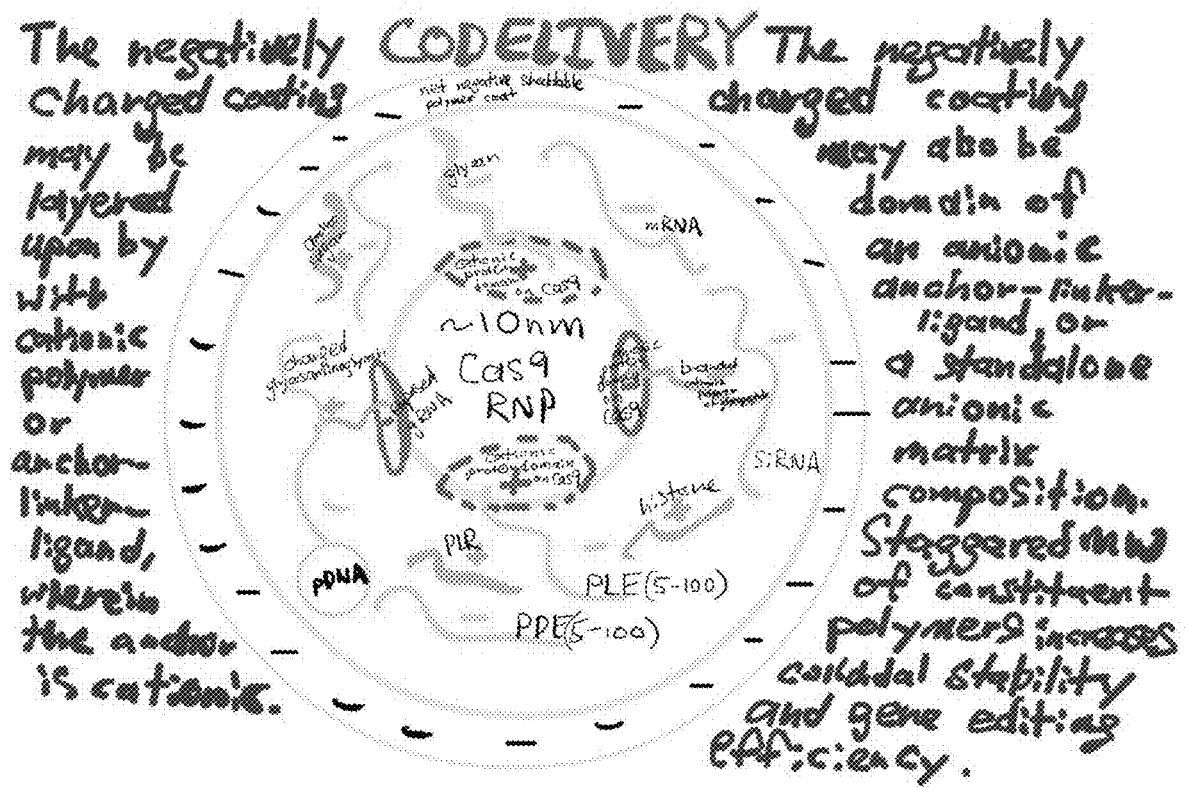 CODELIVERY
The negatively
charged coating
may be
layered
upon by
with
cationic
polymer
or
anchor-
linker-
ligand,
wherein
the anchor
is cationic.
net negative sheddable
polymer coat
glycan
mRNA
cationic
domain
on Cas9
~10nm
Cas9
RNP
charged
exposed
gRNA
Cas9
branched
cationic
polymer
siRNA
cationic
domain
on Cas9
histone
PLR
pDNA
PLE(5-100)
PDE(5-100)
The negatively
charged coating
may also be
domain of
an anionic
anchor-linker-
ligand, or
a standalone
anionic
matrix
composition.
Staggered MW
of constituent
polymers increases
colloidal stability
and gene editing
efficiency.